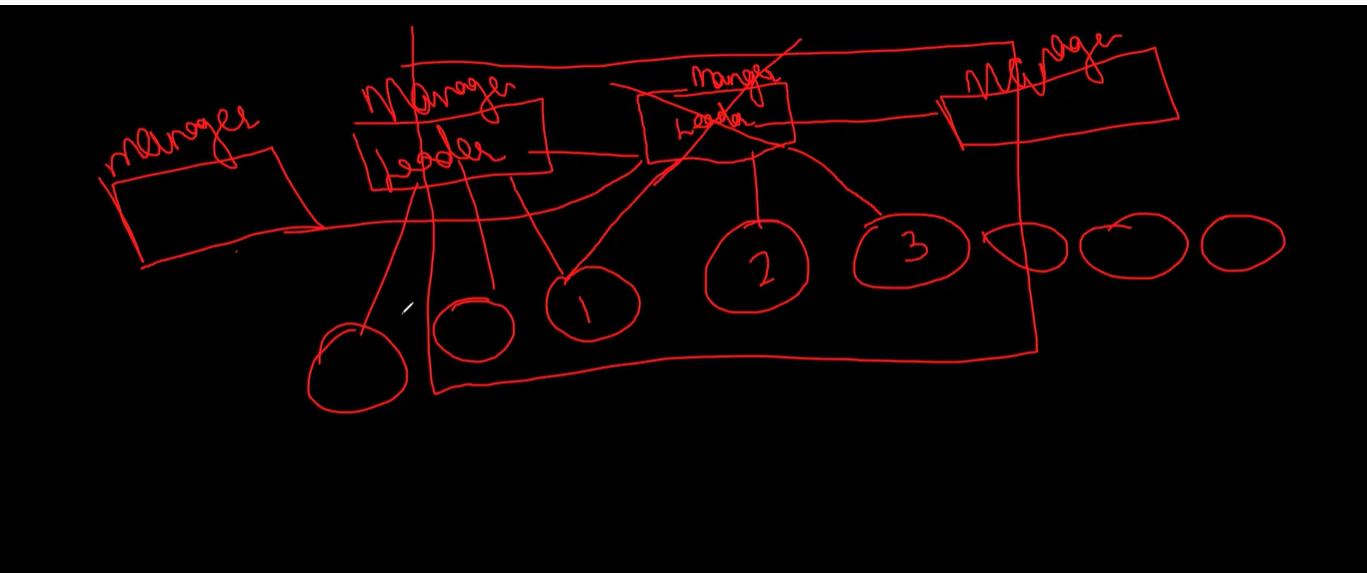 Manager
Manager
Leader
Manger
Leader
Manager
1
2
3